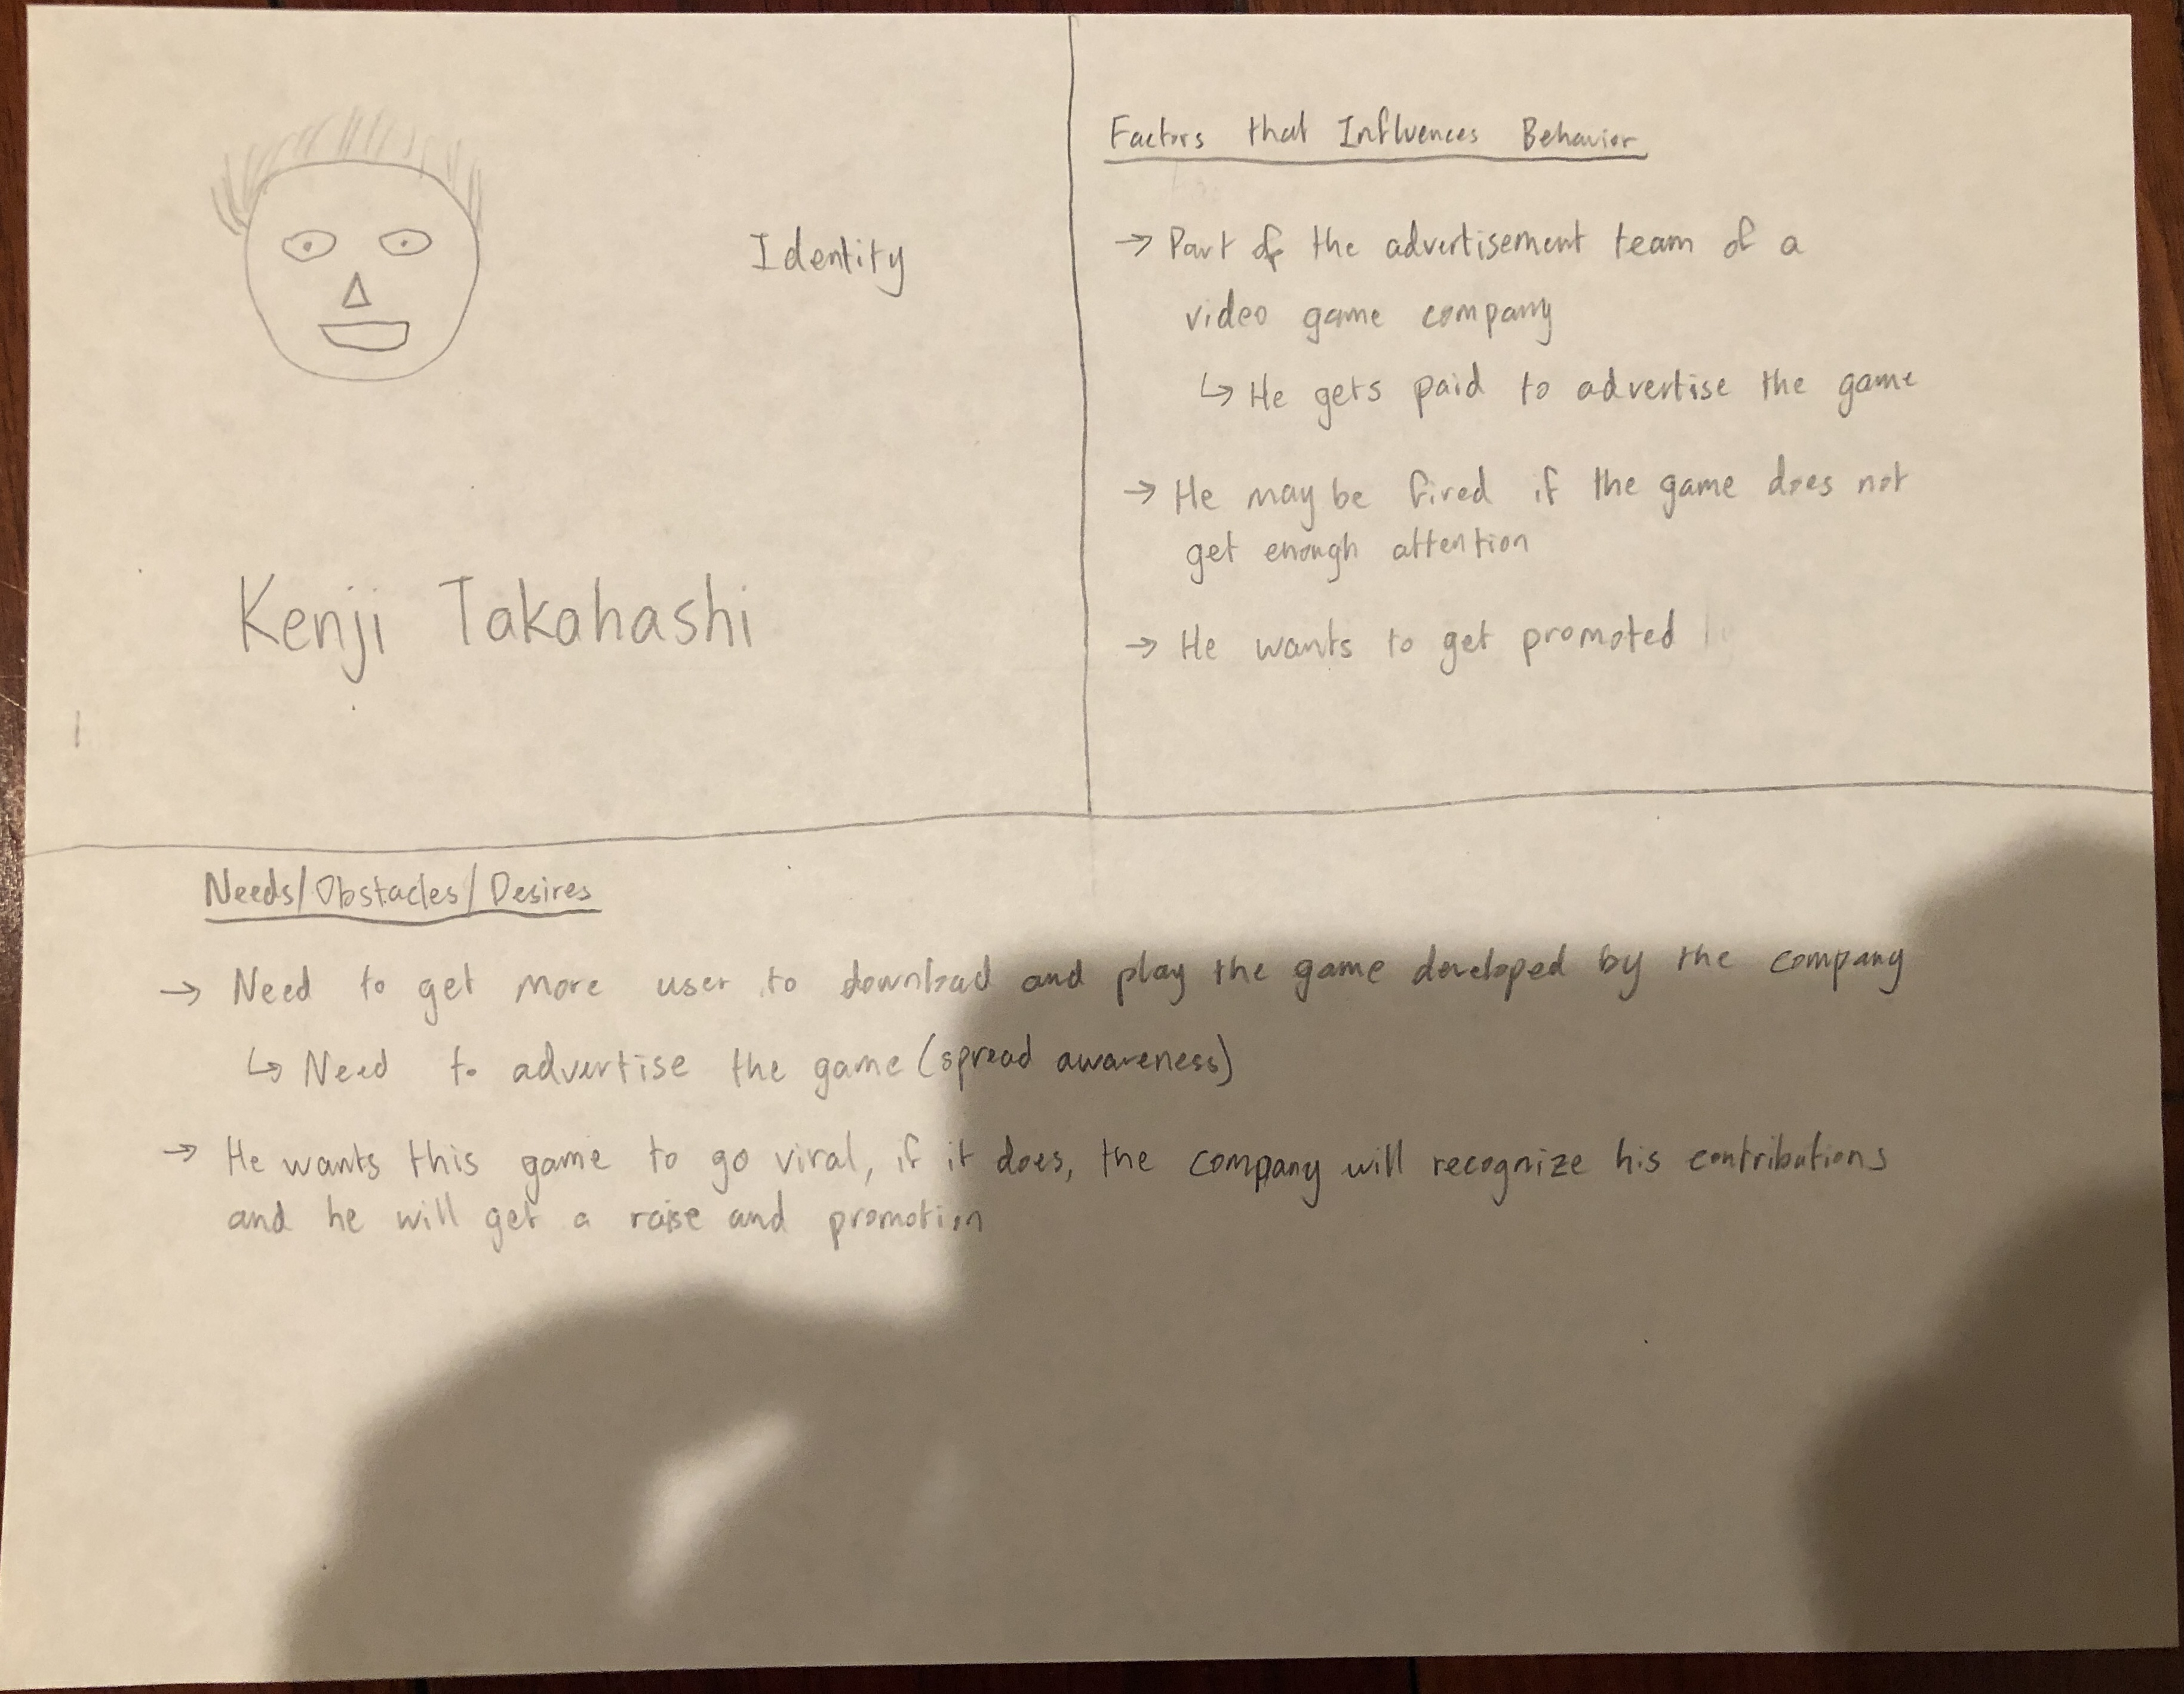 Identity
Kenji Takahashi
Factors that Influences Behavior
→ Part of the advertisement team of a
video game company
↳ He gets paid to advertise the game
→ He may be fired if the game does not
get enough attention
→ He wants to get promoted
Needs/Obstacles/Desires
→ Need to get more user to download and play the game developed by the company
↳ Need to advertise the game (spread awareness)
→ He wants this game to go viral, if it does, the company will recognize his contributions
and he will get a raise and promotion